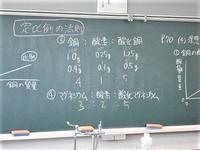 定比例の法則
銅:酸素:酸化銅
1.0g 0.25g 1.25g
0.4g 0.1g 0.5g
4 1 5
④マグネシウム:酸素:酸化マグネシウム
3 2 5
銅の質量
P.70